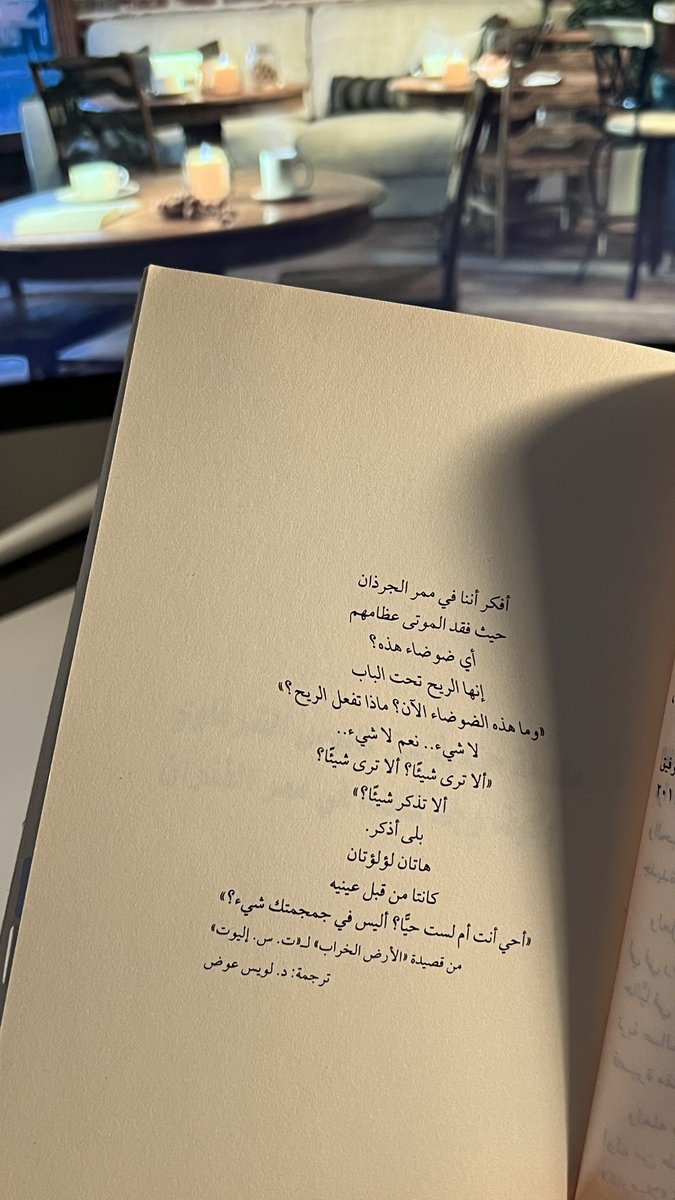 أفكر أننا في ممر الجرذان
حيث فقد الموتى عظامهم
أي ضوضاء هذه؟
إنها الريح تحت الباب
«وما هذه الضوضاء الآن؟ ماذا تفعل الريح؟»
لا شيء.. نعم لا شيء..
«ألا ترى شيئًا؟ ألا ترى شيئًا؟
ألا تذكر شيئًا؟»
بلى أذكر.
هاتان لؤلؤتان
كانتا من قبل عينيه
«أحي أنت أم لست حيًّا؟ أليس في جمجمتك شيء؟»
من قصيدة «الأرض الخراب» لـ«ت. س. إليوت»
ترجمة: د. لويس عوض